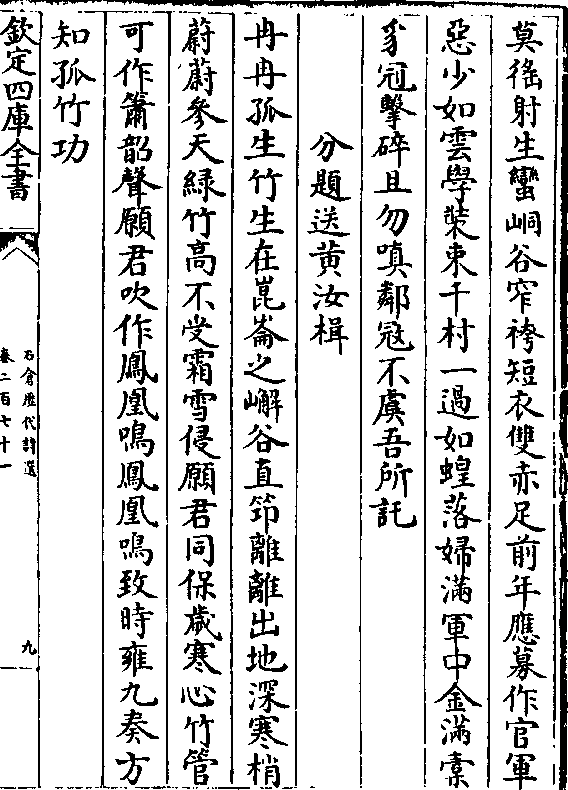 莫徭射生蠻峒谷窄袴短衣雙赤足前年應募作官軍
惡少如雲學裝束千村一過如蝗落婦滿軍中金滿橐
豸冠擊碎且勿嗔鄰冦不虞吾所託
分題送黄汝楫
冉冉孤生竹生在崑崙之嶰谷直節離離出地深寒梢
蔚蔚參天緑竹高不受霜雪侵願君同保歲寒心竹管
可作簫韶聲願君吹作鳳凰鳴鳳凰鳴致時雍九奏方
知孤竹功
欽定四庫全書
石倉歷代詩選
卷二百七十一
九